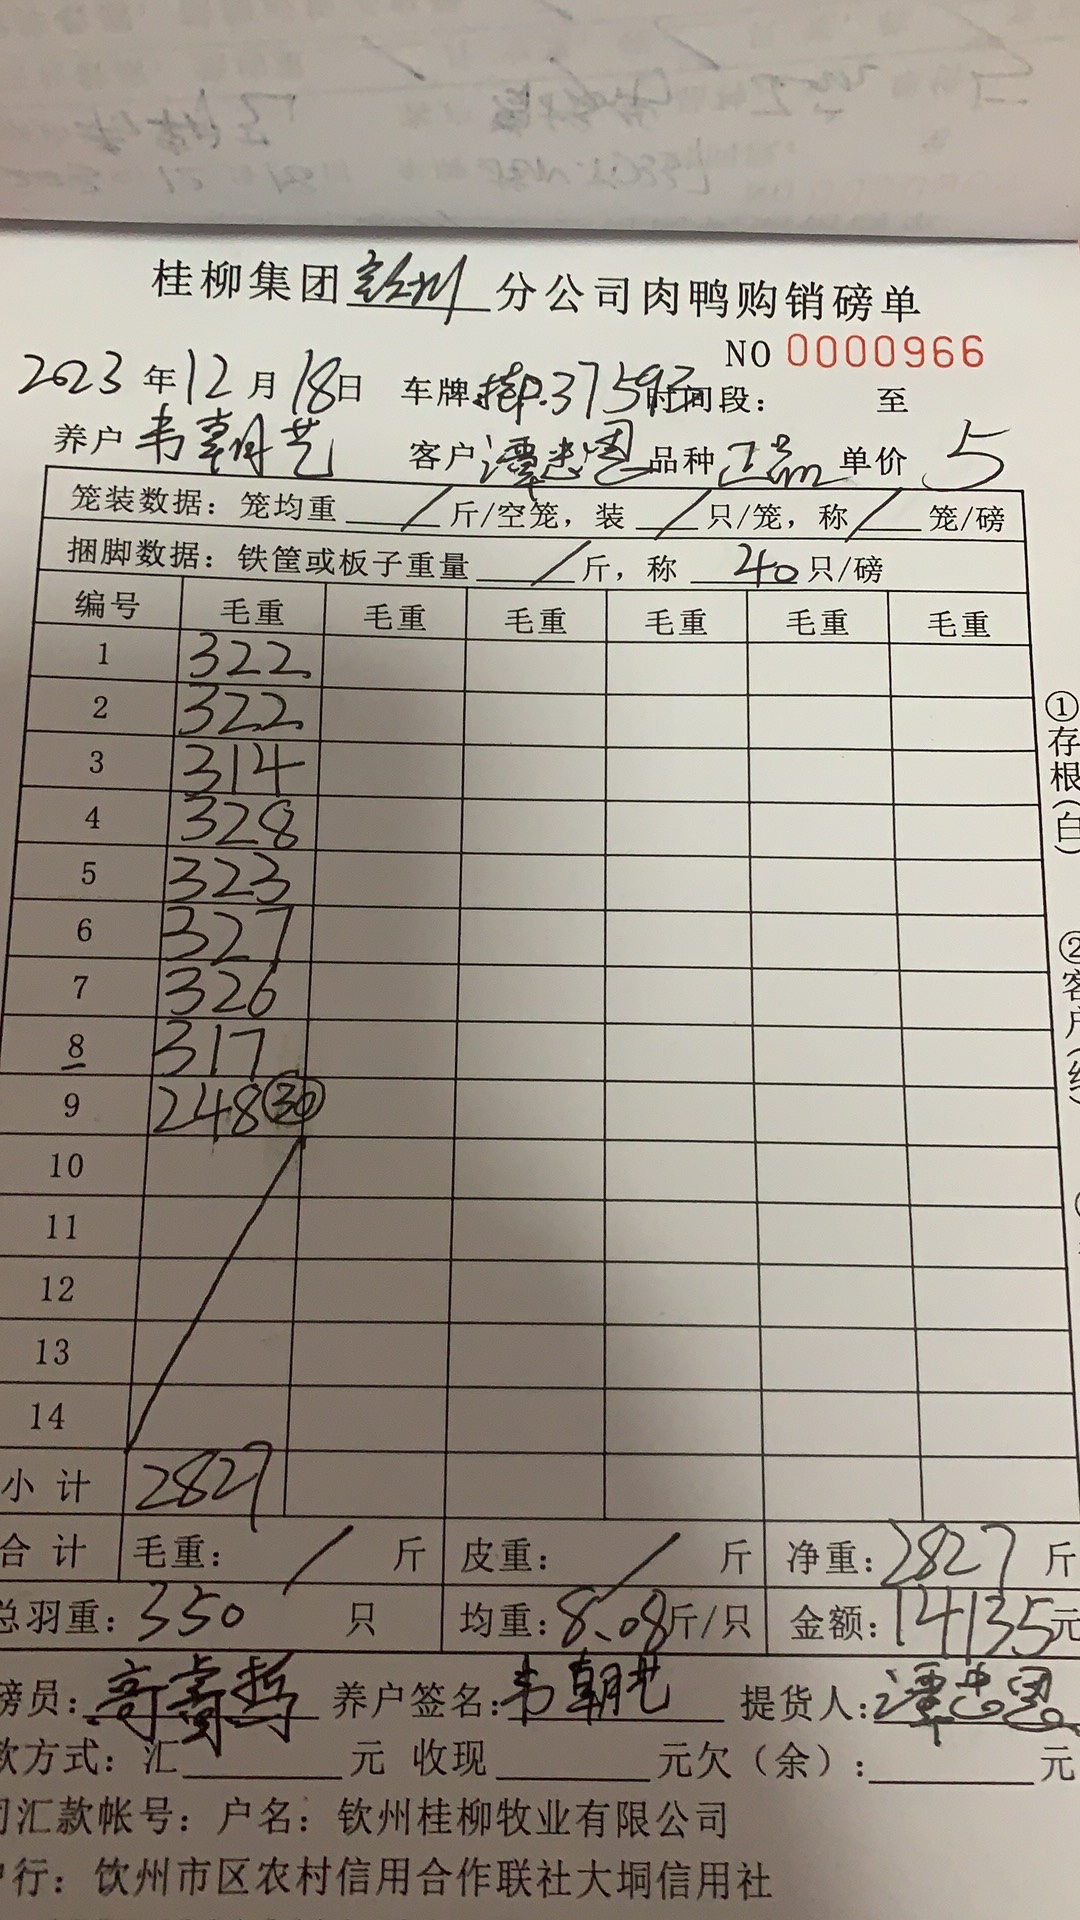 桂柳集团钦州分公司肉鸭购销磅单
NO 0000966
2023年12月18日 车牌:桂P.37593 时间段: 至
养户韦朝艺 客户谭忠恩 品种正品 单价 5
笼装数据:笼均重 / 斤/空笼,装 / 只/笼,称 / 笼/磅
捆脚数据:铁筐或板子重量 / 斤,称 40 只/磅
编号 毛重 毛重 毛重 毛重 毛重 毛重
1 322
2 322
3 314
4 328
5 323
6 327
7 326
8 317
9 248 30
10
11
12
13
14
小计 2827
合计 毛重: / 斤 皮重: / 斤 净重:2827 斤
总羽重:350 只 均重:8.08斤/只 金额:14135元
磅员: 养户签名:韦朝艺 提货人:谭忠恩
款方式:汇 元 收现 元欠(余): 元
司汇款帐号:户名:钦州桂柳牧业有限公司
户行:钦州市区农村信用合作联社大垌信用社
①存根(白)
②客户(红)